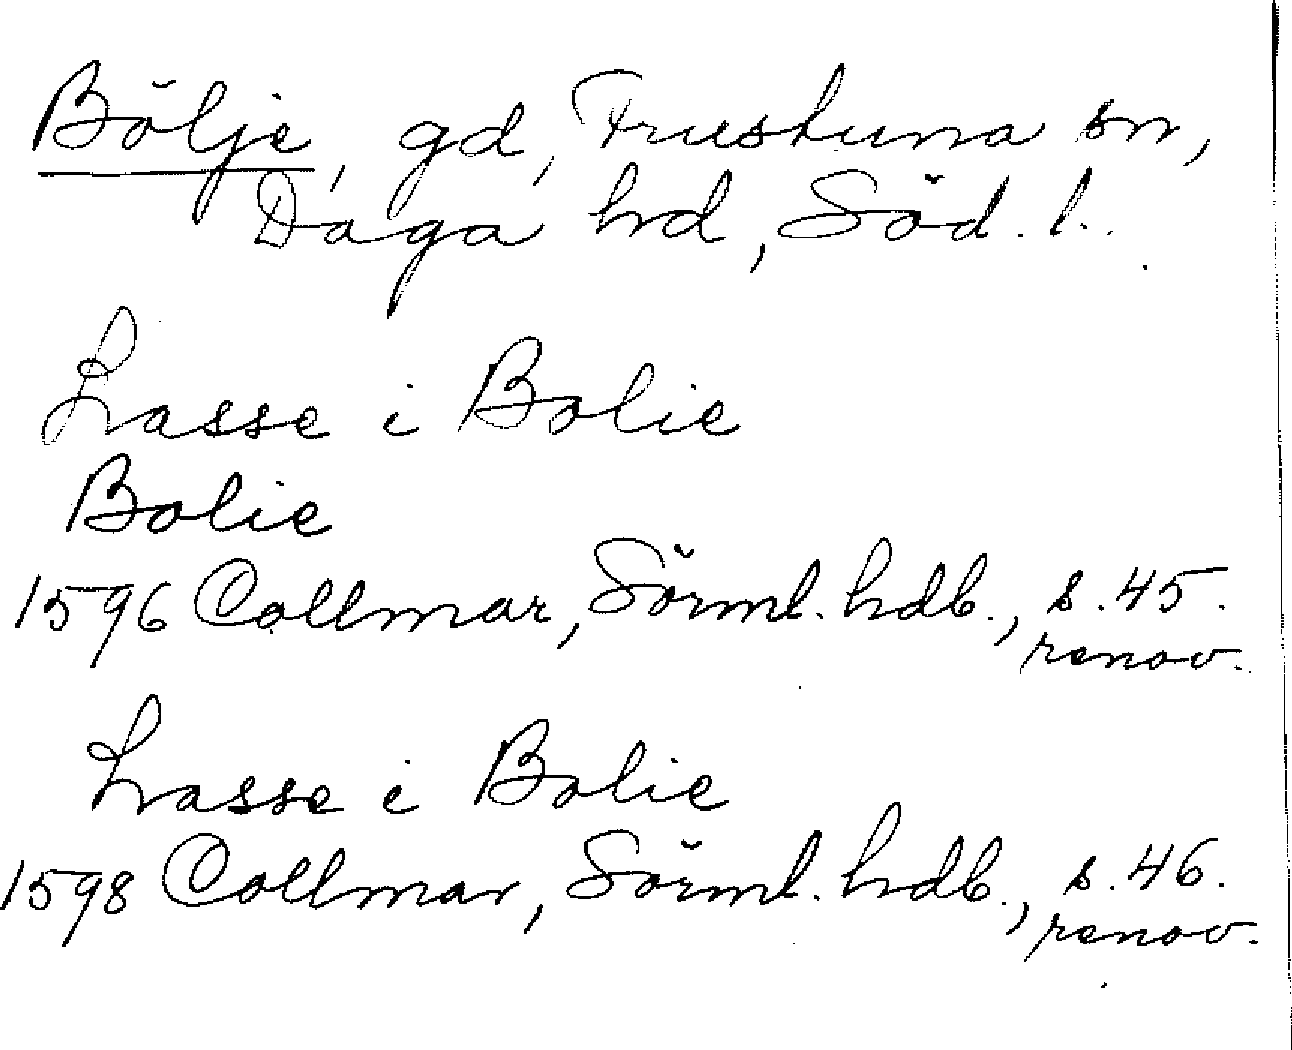 Bölje, gd, Frustuna sn,
Daga hd, Söd. l.
Lasse i Bolie
Bolie
1596 Collmar, Sörml. hdb., s. 45.
renov.
Lasse i Bolie
1598 Collmar, Sörml. hdb., s. 46.
renov.